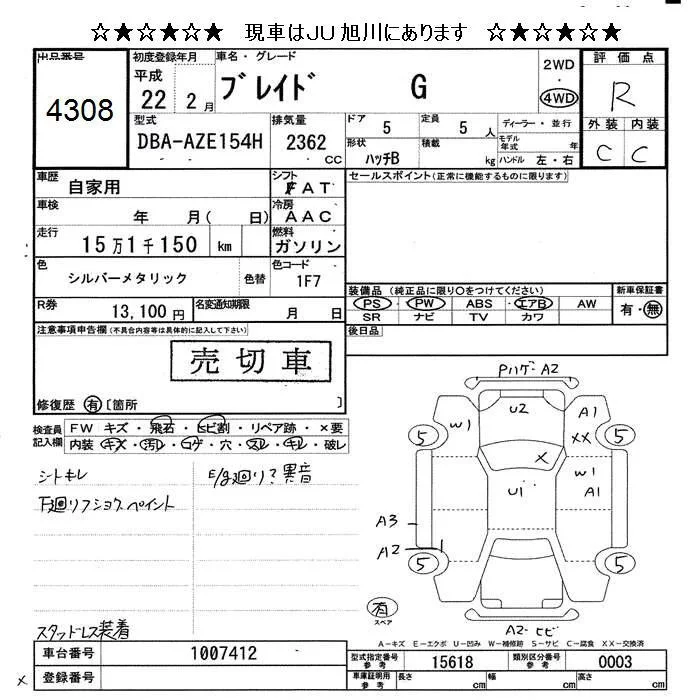 ☆★☆★☆★ 現車はJU旭川にあります ☆★☆★☆★
出品番号 4308
初度登録年月 平成 22 2月
車名・グレード ブレイド G
2WD ・ 4WD
評価点 R
外装 内装
C C
型式 DBA-AZE154H
排気量 2362 CC
ドア 5
定員 5 人
ディーラー・並行
モデル年式 年
形状 ハッチB
積載 kg
ハンドル 左・右
車歴 自家用
シフト FAT
セールスポイント(正常に機能するものに限ります)
車検 年 月( 日)
冷房 AAC
走行 15万1千150 km
燃料 ガソリン
色 シルバーメタリック
色替
色コード 1F7
装備品(純正品に限り○をつけてください)
新車保証書 有・無
PS・PW ABS・エアB AW
SR ナビ TV カワ
R券 13,100円
名変通知期限 月 日
後日品
注意事項申告欄(不具合内容等は具体的に記入して下さい)
売切車
修復歴 有 [箇所 ]
検査員記入欄
FW キズ・飛石・ヒビ割・リペア跡・×要
内装・キズ・汚レ・コゲ・穴・スレ・キレ・破レ
シートキレ
E/g廻り?異音
下廻リフショク、ペイント
スタッドレス装着
PバンパーA2
U2
W1
A1
XX
5
5
X
W1
U1
A1
A3
A2
5
5
有
スペア
A2 ヒビ
A-キズ E-エクボ U-凹み W-補修跡 S-サビ C-腐食 XX-交換済
車台番号 1007412
型式指定番号 参考 15618
類別区分番号 参考 0003
× 登録番号
車庫証明用 参考 長さ cm 幅 cm 高さ cm